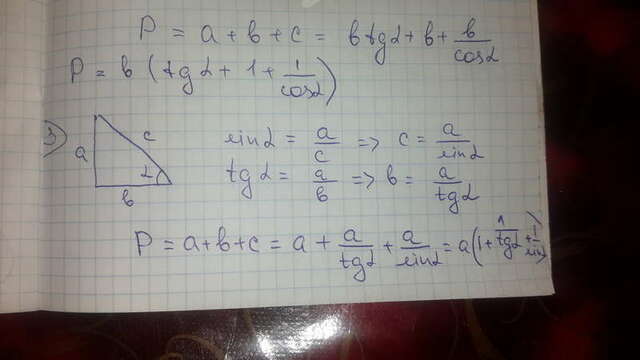 P = a + b + c = b tg α + b + b/cos α
P = b (tg α + 1 + 1/cos α)
3)
a c α b
sin α = a/c => c = a/sin α
tg α = a/b => b = a/tg α
P = a + b + c = a + a/tg α + a/sin α = a (1 + 1/tg α + 1/sin α)